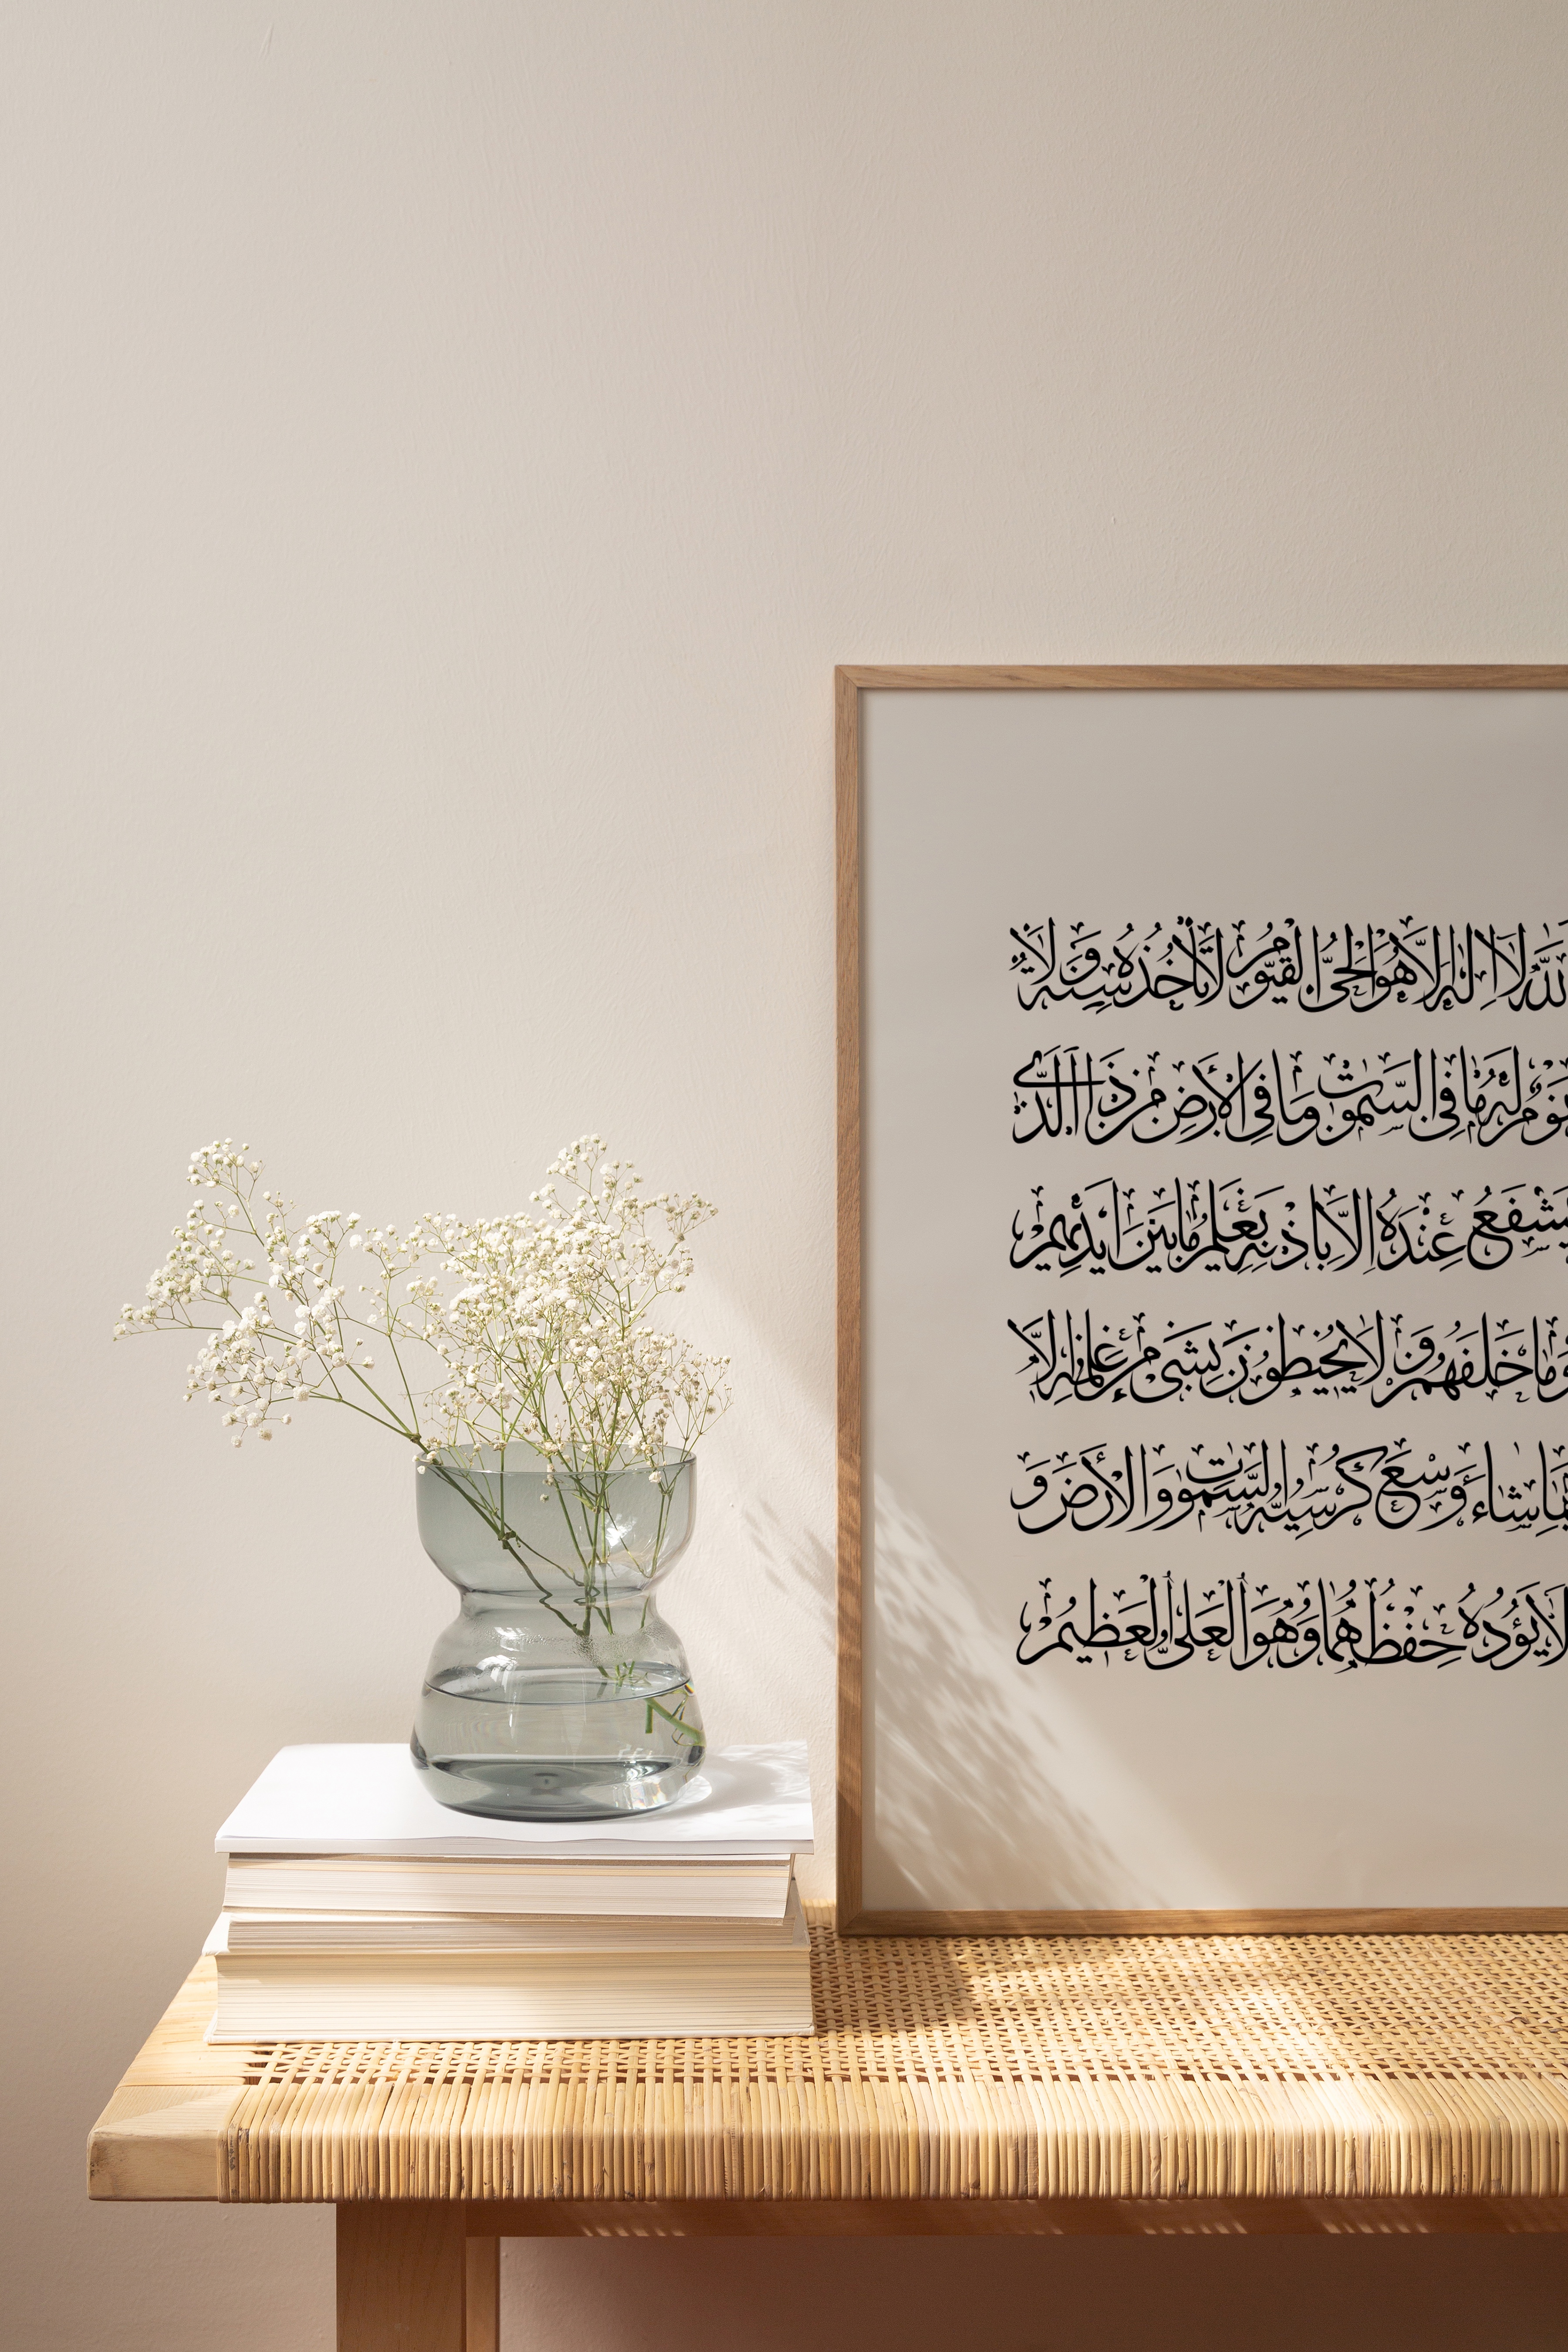 الله لا اله الا هو الحي القيوم لا تأخذه سنة ولا
نوم له ما في السموت وما في الأرض من ذا الذي
يشفع عنده الا باذنه يعلم ما بين ايديهم
وما خلفهم ولا يحيطون بشيء من علمه الا
بما شاء وسع كرسيه السموت والأرض و
لا يؤده حفظهما وهو العلي العظيم